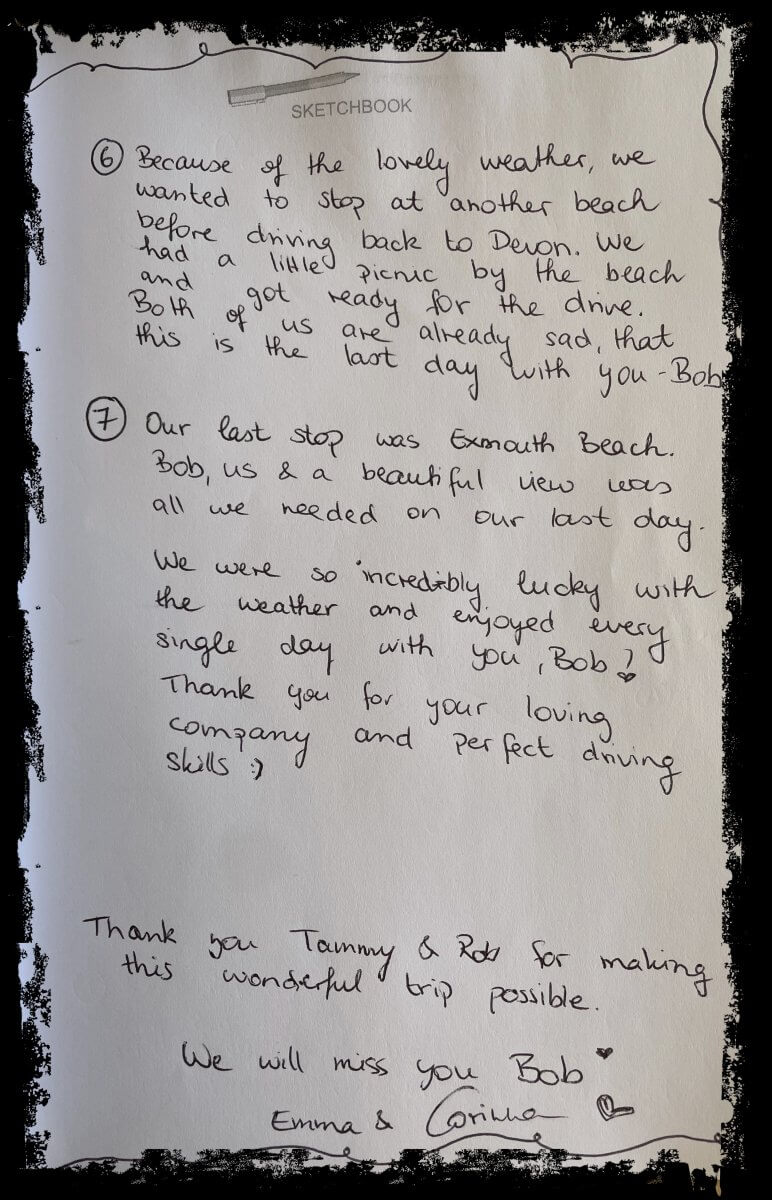 SKETCHBOOK
⑥ Because of the lovely weather, we
wanted to stop at another beach
before driving back to Devon. We
had a little picnic by the beach
and got ready for the drive.
Both of us are already sad, that
this is the last day with you - Bob
⑦ Our last stop was Exmouth Beach.
Bob, us & a beautiful view was
all we needed on our last day.
We were so incredibly lucky with
the weather and enjoyed every
single day with you, Bob!
Thank you for your loving
company and perfect driving
skills :)
Thank you Tammy & Rob for making
this wonderful trip possible.
We will miss you Bob ♥
Emma & Corinna ♥